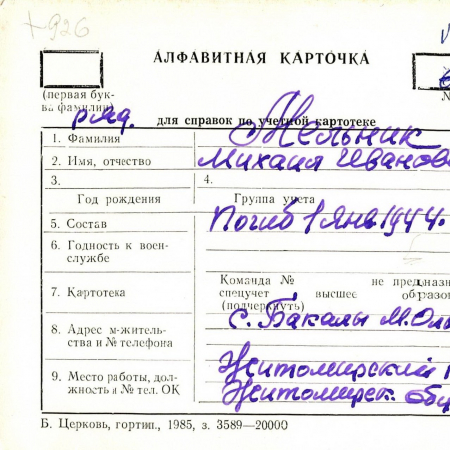 +926
АЛФАВИТНАЯ КАРТОЧКА
(первая бук-
ва фамилии)
ряд.
для справок по учетной картотеке
1. Фамилия Мельник
2. Имя, отчество Михаил Иванов
3. 4.
Год рождения Группа учета
5. Состав Погиб 1 янв. 1944.
6. Годность к воен-
службе
Команда № не предназн
7. Картотека спецучет высшее образо
(подчеркнуть)
с. Бакалы М.
8. Адрес м-житель-
ства и № телефона
Житомирский
9. Место работы, дол-
жность и № тел. ОК Житомирск.
Б. Церковь, гортип., 1985, з. 3589—20000